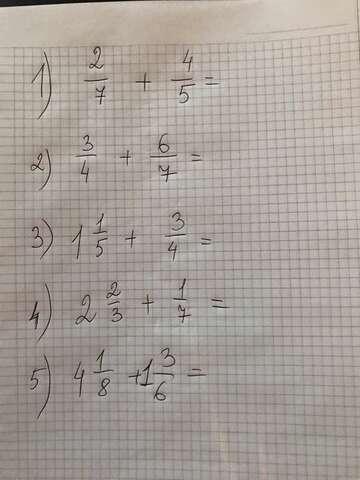 1) 2/7 + 4/5 =
2) 3/4 + 6/7 =
3) 1 1/5 + 3/4 =
4) 2 2/3 + 1/7 =
5) 4 1/8 + 1 3/6 =